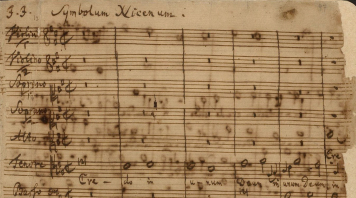 J. J. Symbolum Nicenum:
Violino
Violino
Soprano
Sopr
Alto
Tenore
Cre
Cre - do in unum Deum in unum Deum in
Basso